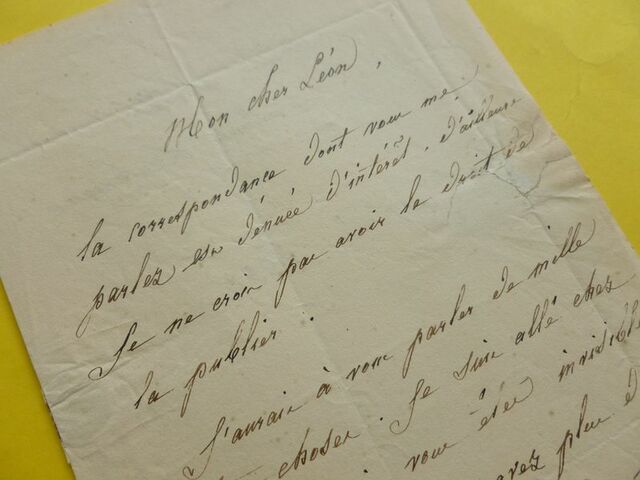 Mon cher Léon,
la correspondance dont vous me
parlez est dénuée d'intérêt. d'ailleurs
Je ne crois pas avoir le droit de
la publier.
J'aurais à vous parler de mille
choses. Je suis allé chez
vous êtes invisible
avez plus d